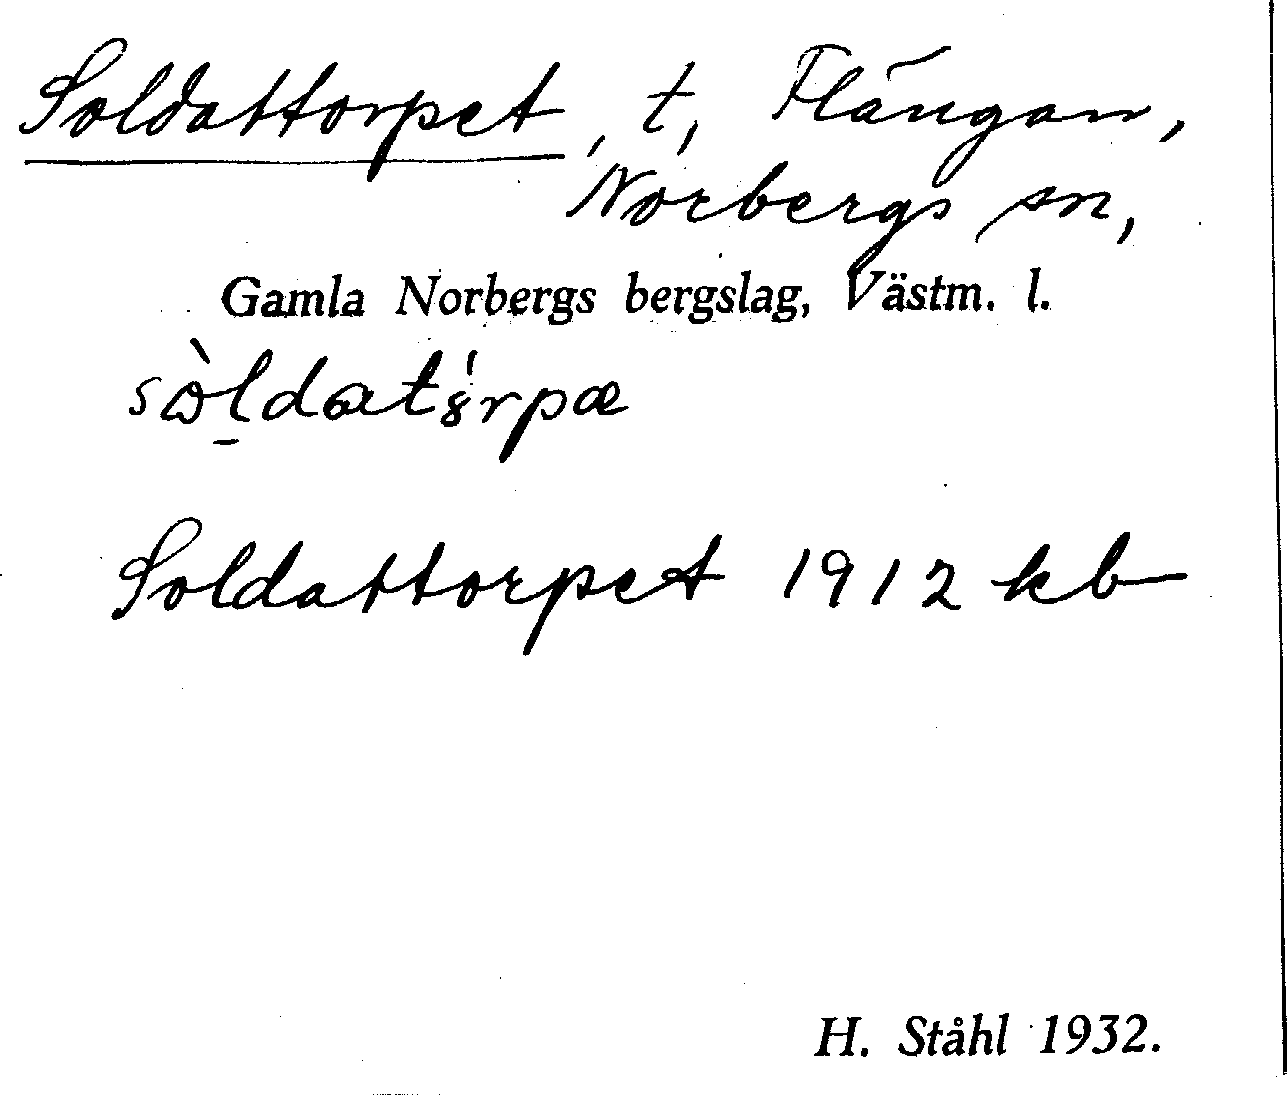 Soldattorpet, t, Flängan,
Norbergs sn,
Gamla Norbergs bergslag, Västm. l.
Soldattorpet 1912 kb
H. Ståhl 1932.